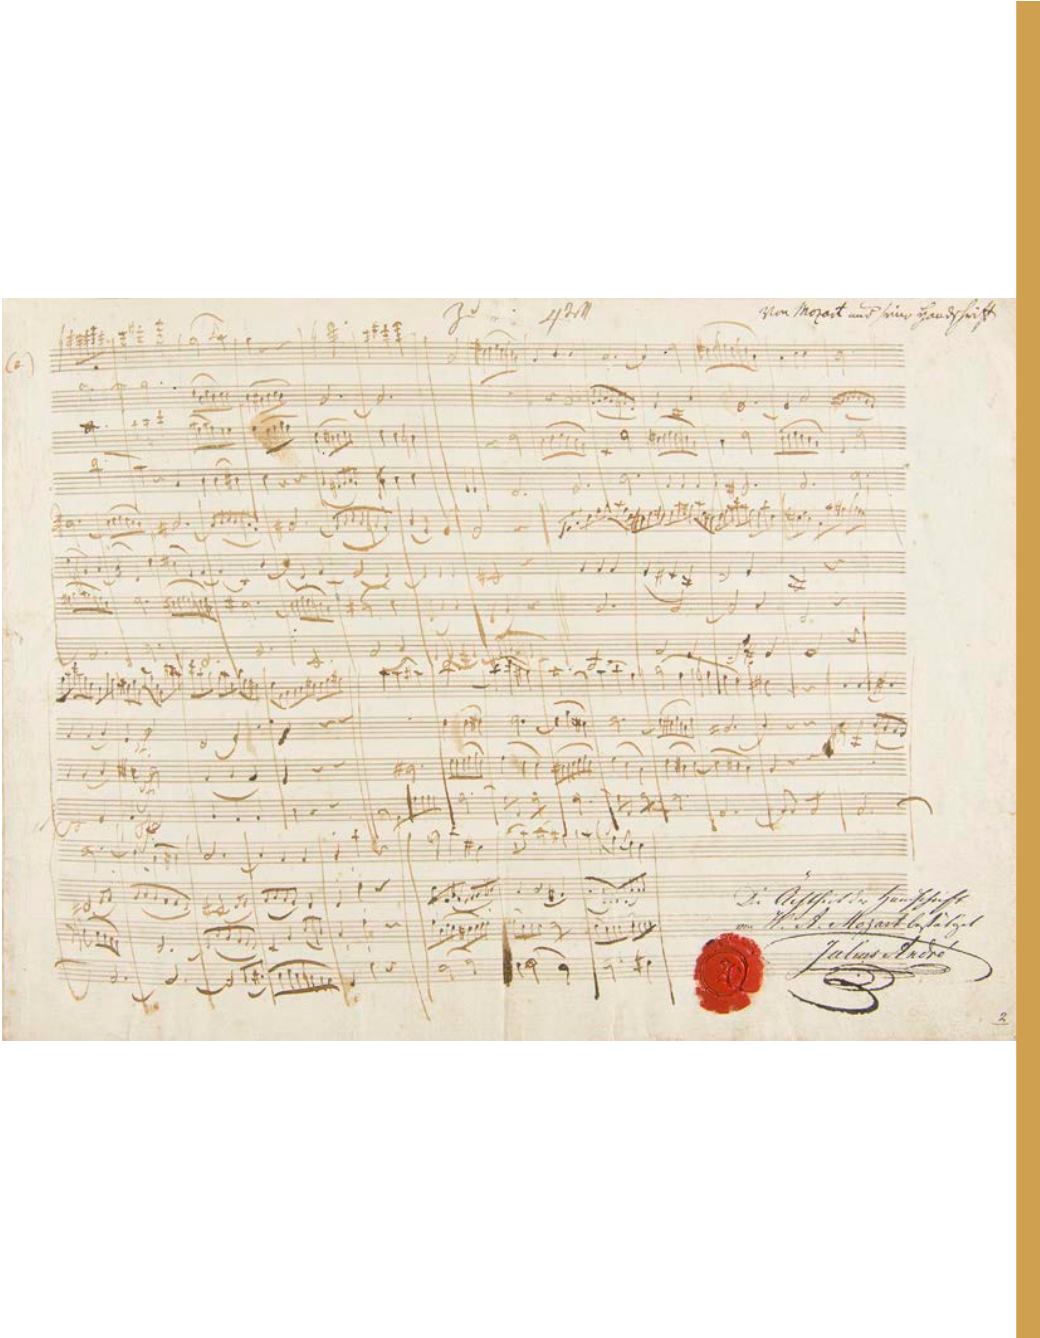 (a)
Zu
Von Mozart und seine Handschrift
Die Ächtheit der Handschrift
von W. A. Mozart bestätigt
Julius André
2